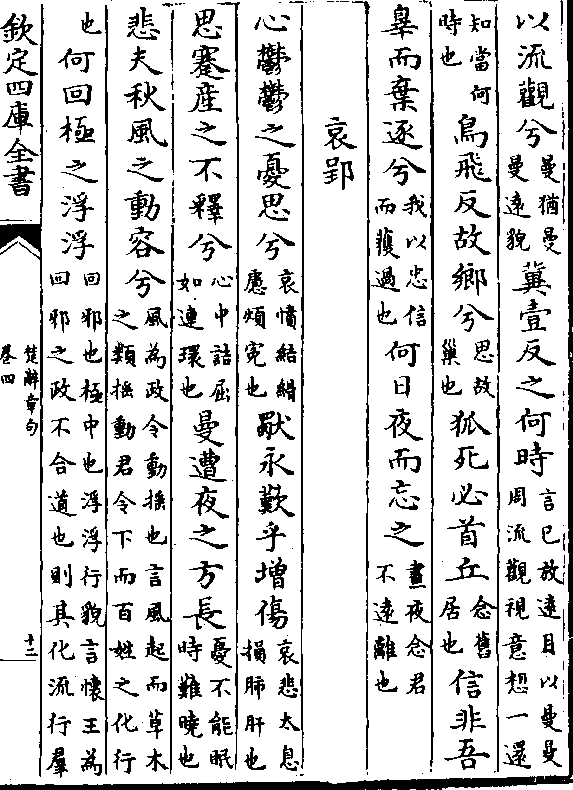 以流觀兮曼猶曼曼遠貌冀壹反之何時言已放遠目以曼曼周流觀視意想一還
知當何時也鳥飛反故鄉兮思故巢也狐死必首丘念舊居也信非吾
辠而棄逐兮我以忠信而獲過也何日夜而忘之晝夜念君不遠離也
哀郢
心鬱鬱之憂思兮哀憤結縎慮煩寃也獨永歎乎增傷哀悲太息損肺肝也
思蹇產之不釋兮心中詰屈如連環也曼遭夜之方長憂不能眠時難曉也
悲夫秋風之動容兮風為政令動揺也言風起而草木之類揺動君令下而百姓之化行
也何回極之浮浮回邪也極中也浮浮行貌言懷王為回邪之政不合道也則其化流行羣
欽定四庫全書
楚辭章句
卷四
十二